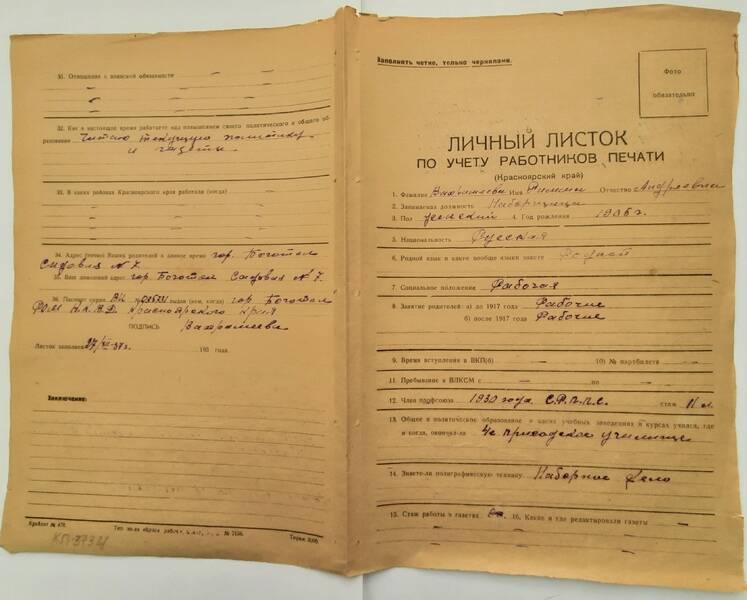 31. Отношение к воинской обязанности — —
32. Как в настоящее время работаете над повышением своего политического и общего об-
разования Читаю текущую политику
и газеты.
33. В каких районах Красноярского края работали (когда) —
34. Адрес (точно) Ваших родителей в данное время гор. Боготол
Садовая № 7.
35. Ваш домашний адрес гор. Боготол Садовая № 7.
36. Паспорт серия № выдан (кем, когда) гор. Боготол
РОМ Н.К.В.Д. Красноярского края
ПОДПИСЬ Вахрамеева
Листок заполнен 27/ 193 года.
Заключение:
Крайлит № 476. Тип. № 7156. Тираж
КП-3732
Заполнять четко, только чернилами.
Фото
обязательно
ЛИЧНЫЙ ЛИСТОК
ПО УЧЕТУ РАБОТНИКОВ ПЕЧАТИ
(Красноярский край)
1. Фамилия Вахрамеева Имя Отчество Андреевна
2. Занимаемая должность Наборщица
3. Пол женский 4. Год рождения 1906 г.
5. Национальность Русская
6. Родной язык и какие вообще языки знаете
7. Социальное положение Рабочая
8. Занятие родителей: а) до 1917 года Рабочие
б) после 1917 года Рабочие
9. Время вступления в ВКП(б) — 10) № партбилета —
11. Пребывание в ВЛКСМ с — по —
12. Член профсоюза 1930 года С.Р.П.П.С. стаж 11 л.
13. Общее и политическое образование в каких учебных заведениях и курсах учился, где
и когда, окончил-ла 4е приходское училище
14. Знаете-ли полиграфическую технику Наборное дело
15. Стаж работы в газетах 16. Какие и где редактировали газеты —